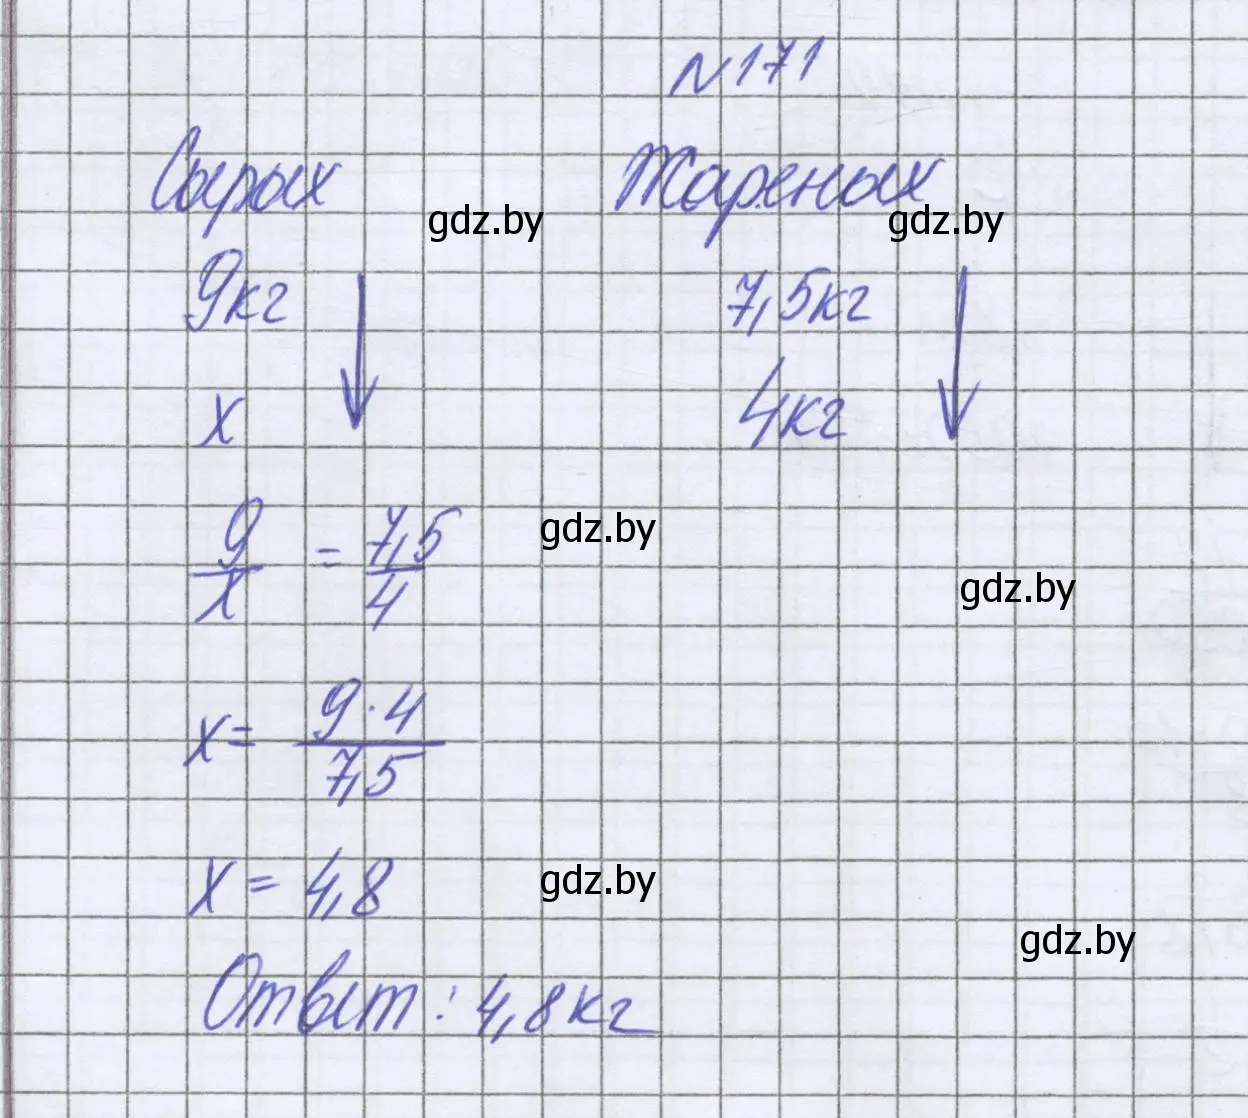 N171
Сырых Жареных
gdz.by gdz.by
9кг 7,5кг
x 4кг
9/x = 7,5/4
gdz.by
gdz.by
x = 9·4/7,5
x = 4,8
gdz.by
gdz.by
Ответ: 4,8кг